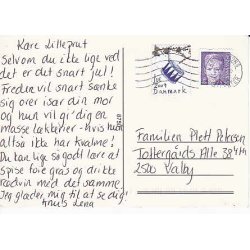 Kære Lilleprut
Selvom du ikke lige ved
det er det snart jul!
Freden vil snart sænke
sig over især din mor
og hun vil gi' dig en
masse lækkerier - hvis hun
altså ikke har kvalme!
Du kan lige så godt lære at
spise to te grøs og drikke
rødvin med det samme.
Jeg glæder mig til at se dig!
Knus Lena
Danmark
Familien Plett Petersen
Toftegårds Allé 38
2500 Valby